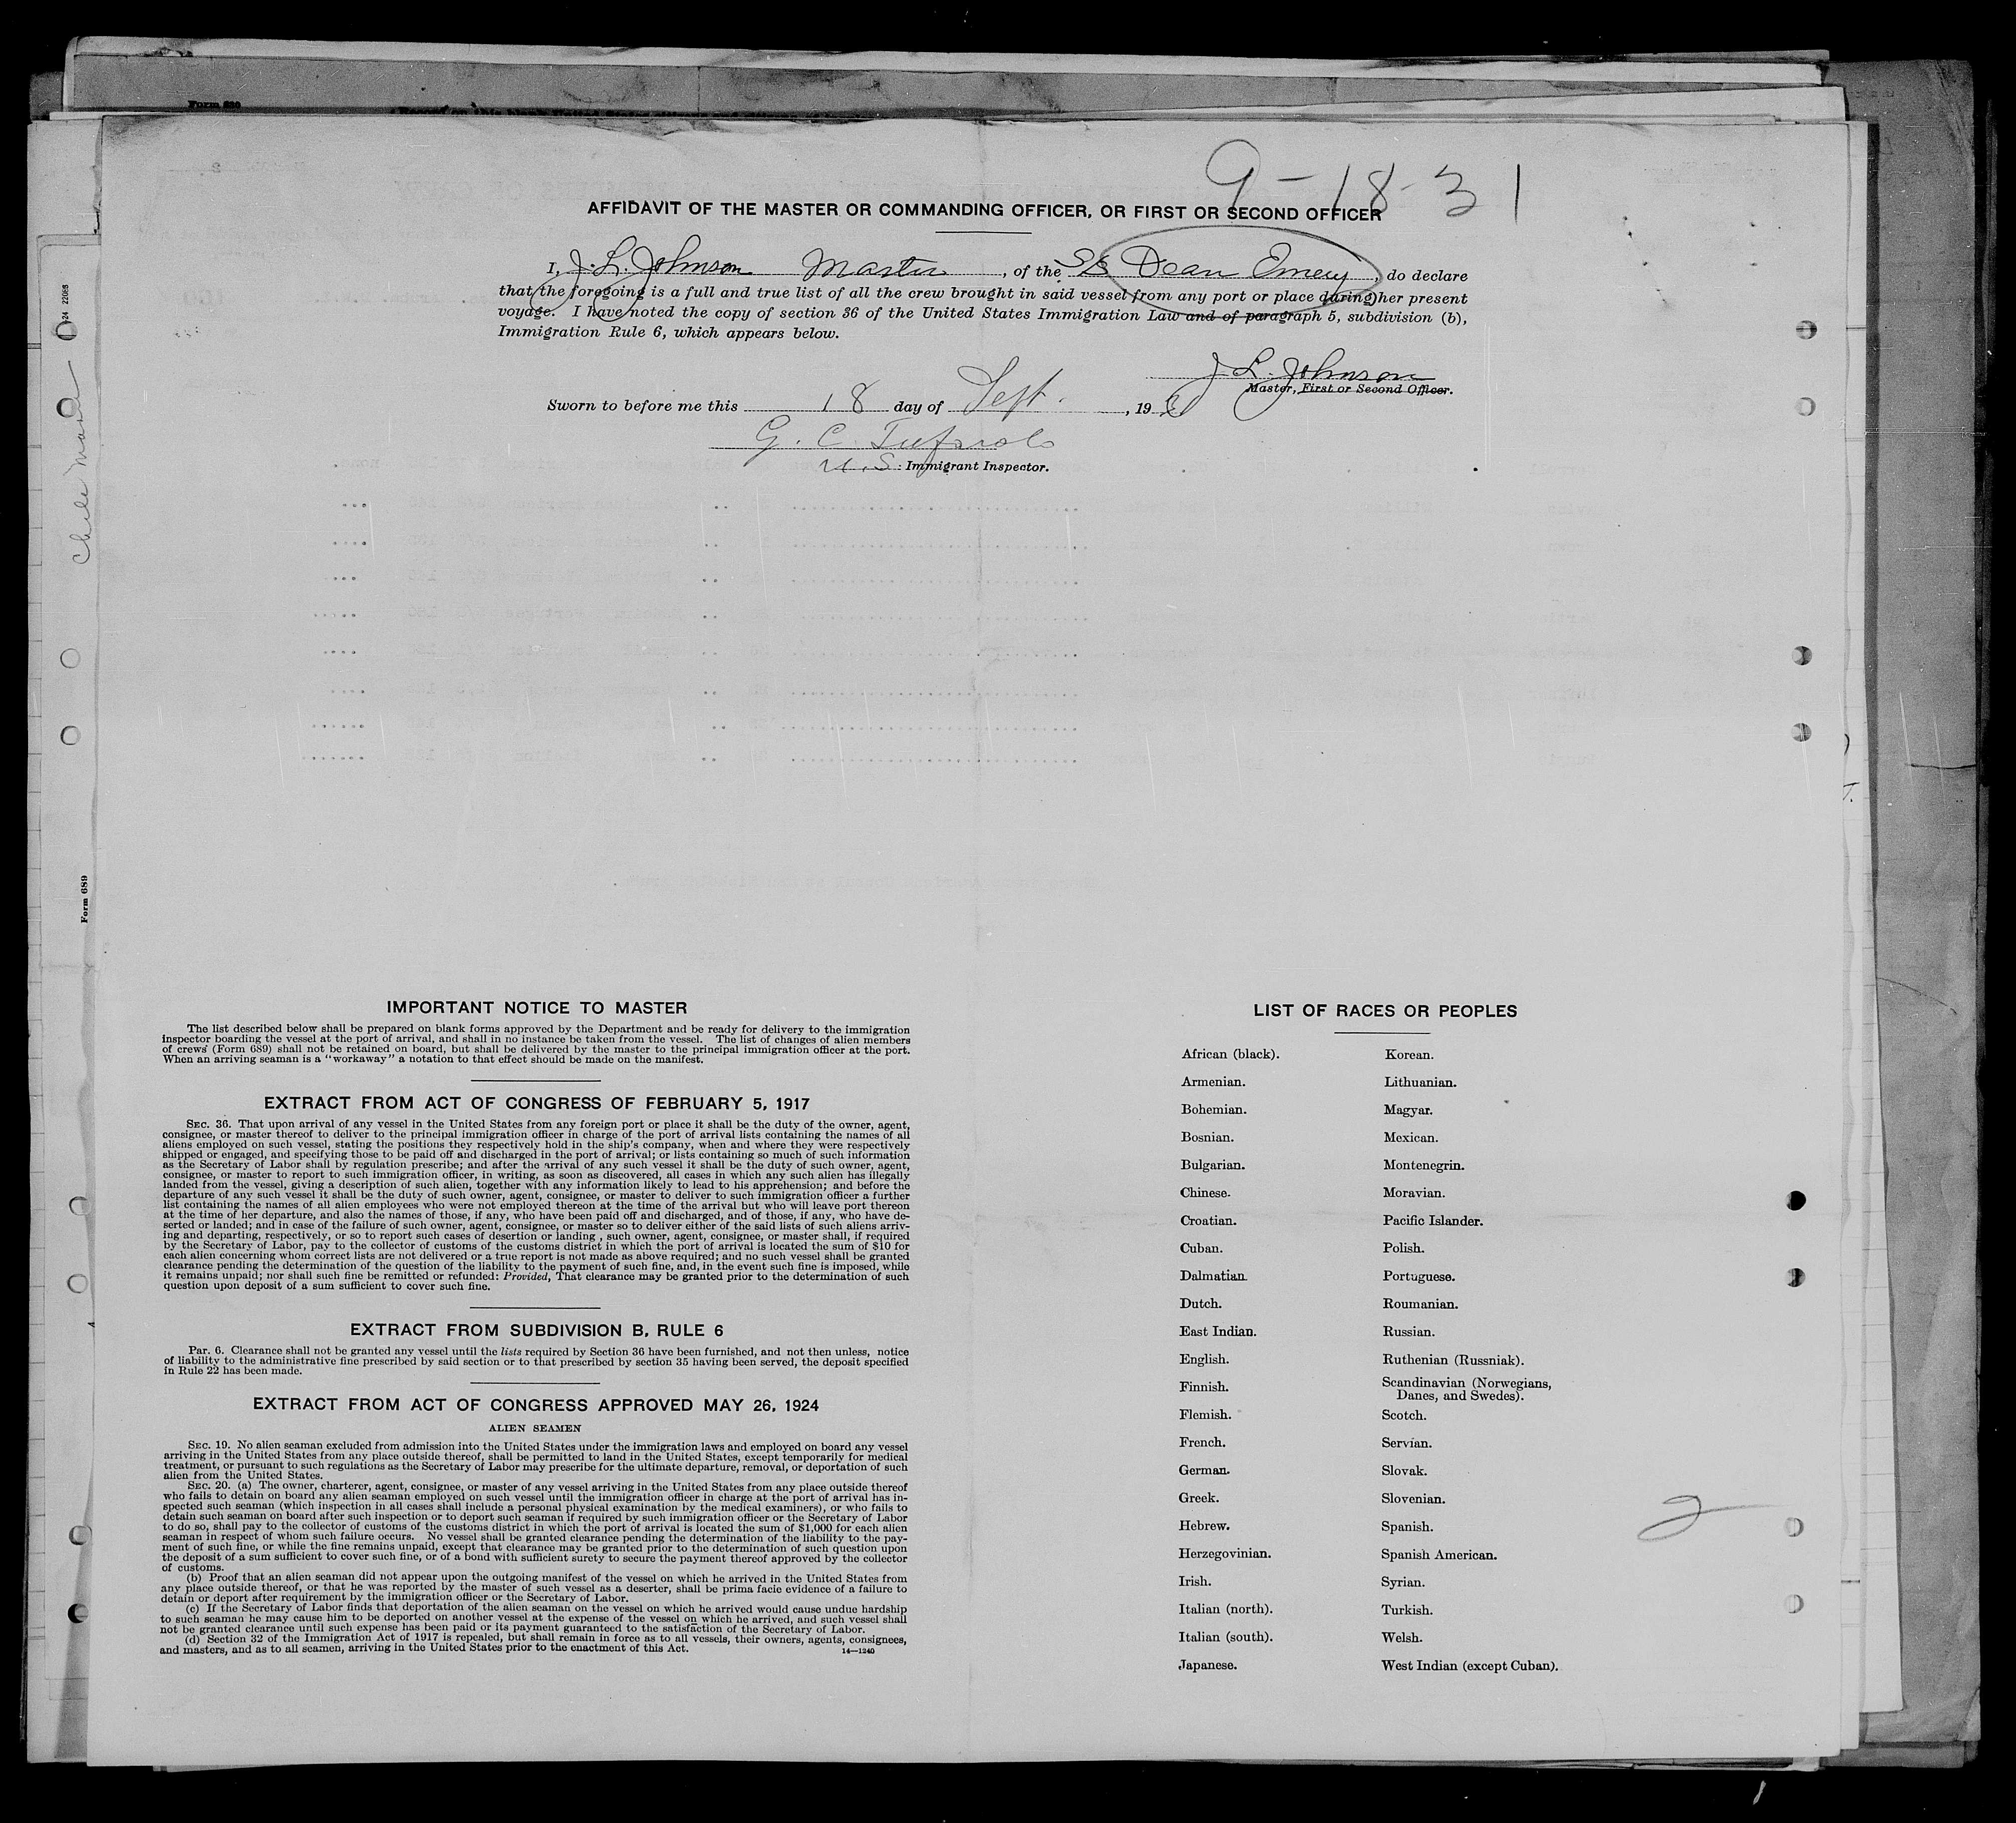 9-18-31
AFFIDAVIT OF THE MASTER OR COMMANDING OFFICER, OR FIRST OR SECOND OFFICER
I, J. L. Johnson Master, of the SS Dean Emery, do declare
that the foregoing is a full and true list of all the crew brought in said vessel from any port or place during her present
voyage. I have noted the copy of section 36 of the United States Immigration Law and of paragraph 5, subdivision (b),
Immigration Rule 6, which appears below.
J. L. Johnson
Master, First or Second Officer.
Sworn to before me this 18 day of Sept., 19
G. C.
U.S. Immigrant Inspector.
Form 689
IMPORTANT NOTICE TO MASTER
The list described below shall be prepared on blank forms approved by the Department and be ready for delivery to the immigration
inspector boarding the vessel at the port of arrival, and shall in no instance be taken from the vessel. The list of changes of alien members
of crews (Form 689) shall not be retained on board, but shall be delivered by the master to the principal immigration officer at the port.
When an arriving seaman is a "workaway" a notation to that effect should be made on the manifest.
EXTRACT FROM ACT OF CONGRESS OF FEBRUARY 5, 1917
SEC. 36. That upon arrival of any vessel in the United States from any foreign port or place it shall be the duty of the owner, agent,
consignee, or master thereof to deliver to the principal immigration officer in charge of the port of arrival lists containing the names of all
aliens employed on such vessel, stating the positions they respectively hold in the ship's company, when and where they were respectively
shipped or engaged, and specifying those to be paid off and discharged in the port of arrival; or lists containing so much of such information
as the Secretary of Labor shall by regulation prescribe; and after the arrival of any such vessel it shall be the duty of such owner, agent,
consignee, or master to report to such immigration officer, in writing, as soon as discovered, all cases in which any such alien has illegally
landed from the vessel, giving a description of such alien, together with any information likely to lead to his apprehension; and before the
departure of any such vessel it shall be the duty of such owner, agent, consignee, or master to deliver to such immigration officer a further
list containing the names of all alien employees who were not employed thereon at the time of the arrival but who will leave port thereon
at the time of her departure, and also the names of those, if any, who have been paid off and discharged, and of those, if any, who have de-
serted or landed; and in case of the failure of such owner, agent, consignee, or master so to deliver either of the said lists of such aliens arriv-
ing and departing, respectively, or so to report such cases of desertion or landing, such owner, agent, consignee, or master shall, if required
by the Secretary of Labor, pay to the collector of customs of the customs district in which the port of arrival is located the sum of $10 for
each alien concerning whom correct lists are not delivered or a true report is not made as above required; and no such vessel shall be granted
clearance pending the determination of the question of the liability to the payment of such fine, and, in the event such fine is imposed, while
it remains unpaid; nor shall such fine be remitted or refunded: Provided, That clearance may be granted prior to the determination of such
question upon deposit of a sum sufficient to cover such fine.
EXTRACT FROM SUBDIVISION B, RULE 6
Par. 6. Clearance shall not be granted any vessel until the lists required by Section 36 have been furnished, and not then unless, notice
of liability to the administrative fine prescribed by said section or to that prescribed by section 35 having been served, the deposit specified
in Rule 22 has been made.
EXTRACT FROM ACT OF CONGRESS APPROVED MAY 26, 1924
ALIEN SEAMEN
SEC. 19. No alien seaman excluded from admission into the United States under the immigration laws and employed on board any vessel
arriving in the United States from any place outside thereof, shall be permitted to land in the United States, except temporarily for medical
treatment, or pursuant to such regulations as the Secretary of Labor may prescribe for the ultimate departure, removal, or deportation of such
alien from the United States.
SEC. 20. (a) The owner, charterer, agent, consignee, or master of any vessel arriving in the United States from any place outside thereof
who fails to detain on board any alien seaman employed on such vessel until the immigration officer in charge at the port of arrival has in-
spected such seaman (which inspection in all cases shall include a personal physical examination by the medical examiners), or who fails to
detain such seaman on board after such inspection or to deport such seaman if required by such immigration officer or the Secretary of Labor
to do so, shall pay to the collector of customs of the customs district in which the port of arrival is located the sum of $1,000 for each alien
seaman in respect of whom such failure occurs. No vessel shall be granted clearance pending the determination of the liability to the pay-
ment of such fine, or while the fine remains unpaid, except that clearance may be granted prior to the determination of such question upon
the deposit of a sum sufficient to cover such fine, or of a bond with sufficient surety to secure the payment thereof approved by the collector
of customs.
(b) Proof that an alien seaman did not appear upon the outgoing manifest of the vessel on which he arrived in the United States from
any place outside thereof, or that he was reported by the master of such vessel as a deserter, shall be prima facie evidence of a failure to
detain or deport after requirement by the immigration officer or the Secretary of Labor.
(c) If the Secretary of Labor finds that deportation of the alien seaman on the vessel on which he arrived would cause undue hardship
to such seaman he may cause him to be deported on another vessel at the expense of the vessel on which he arrived, and such vessel shall
not be granted clearance until such expense has been paid or its payment guaranteed to the satisfaction of the Secretary of Labor.
(d) Section 32 of the Immigration Act of 1917 is repealed, but shall remain in force as to all vessels, their owners, agents, consignees,
and masters, and as to all seamen, arriving in the United States prior to the enactment of this Act.
14—1240
LIST OF RACES OR PEOPLES
African (black). Korean.
Armenian. Lithuanian.
Bohemian. Magyar.
Bosnian. Mexican.
Bulgarian. Montenegrin.
Chinese. Moravian.
Croatian. Pacific Islander.
Cuban. Polish.
Dalmatian. Portuguese.
Dutch. Roumanian.
East Indian. Russian.
English. Ruthenian (Russniak).
Finnish. Scandinavian (Norwegians,
Danes, and Swedes).
Flemish. Scotch.
French. Servian.
German. Slovak.
Greek. Slovenian.
Hebrew. Spanish.
Herzegovinian. Spanish American.
Irish. Syrian.
Italian (north). Turkish.
Italian (south). Welsh.
Japanese. West Indian (except Cuban).
2